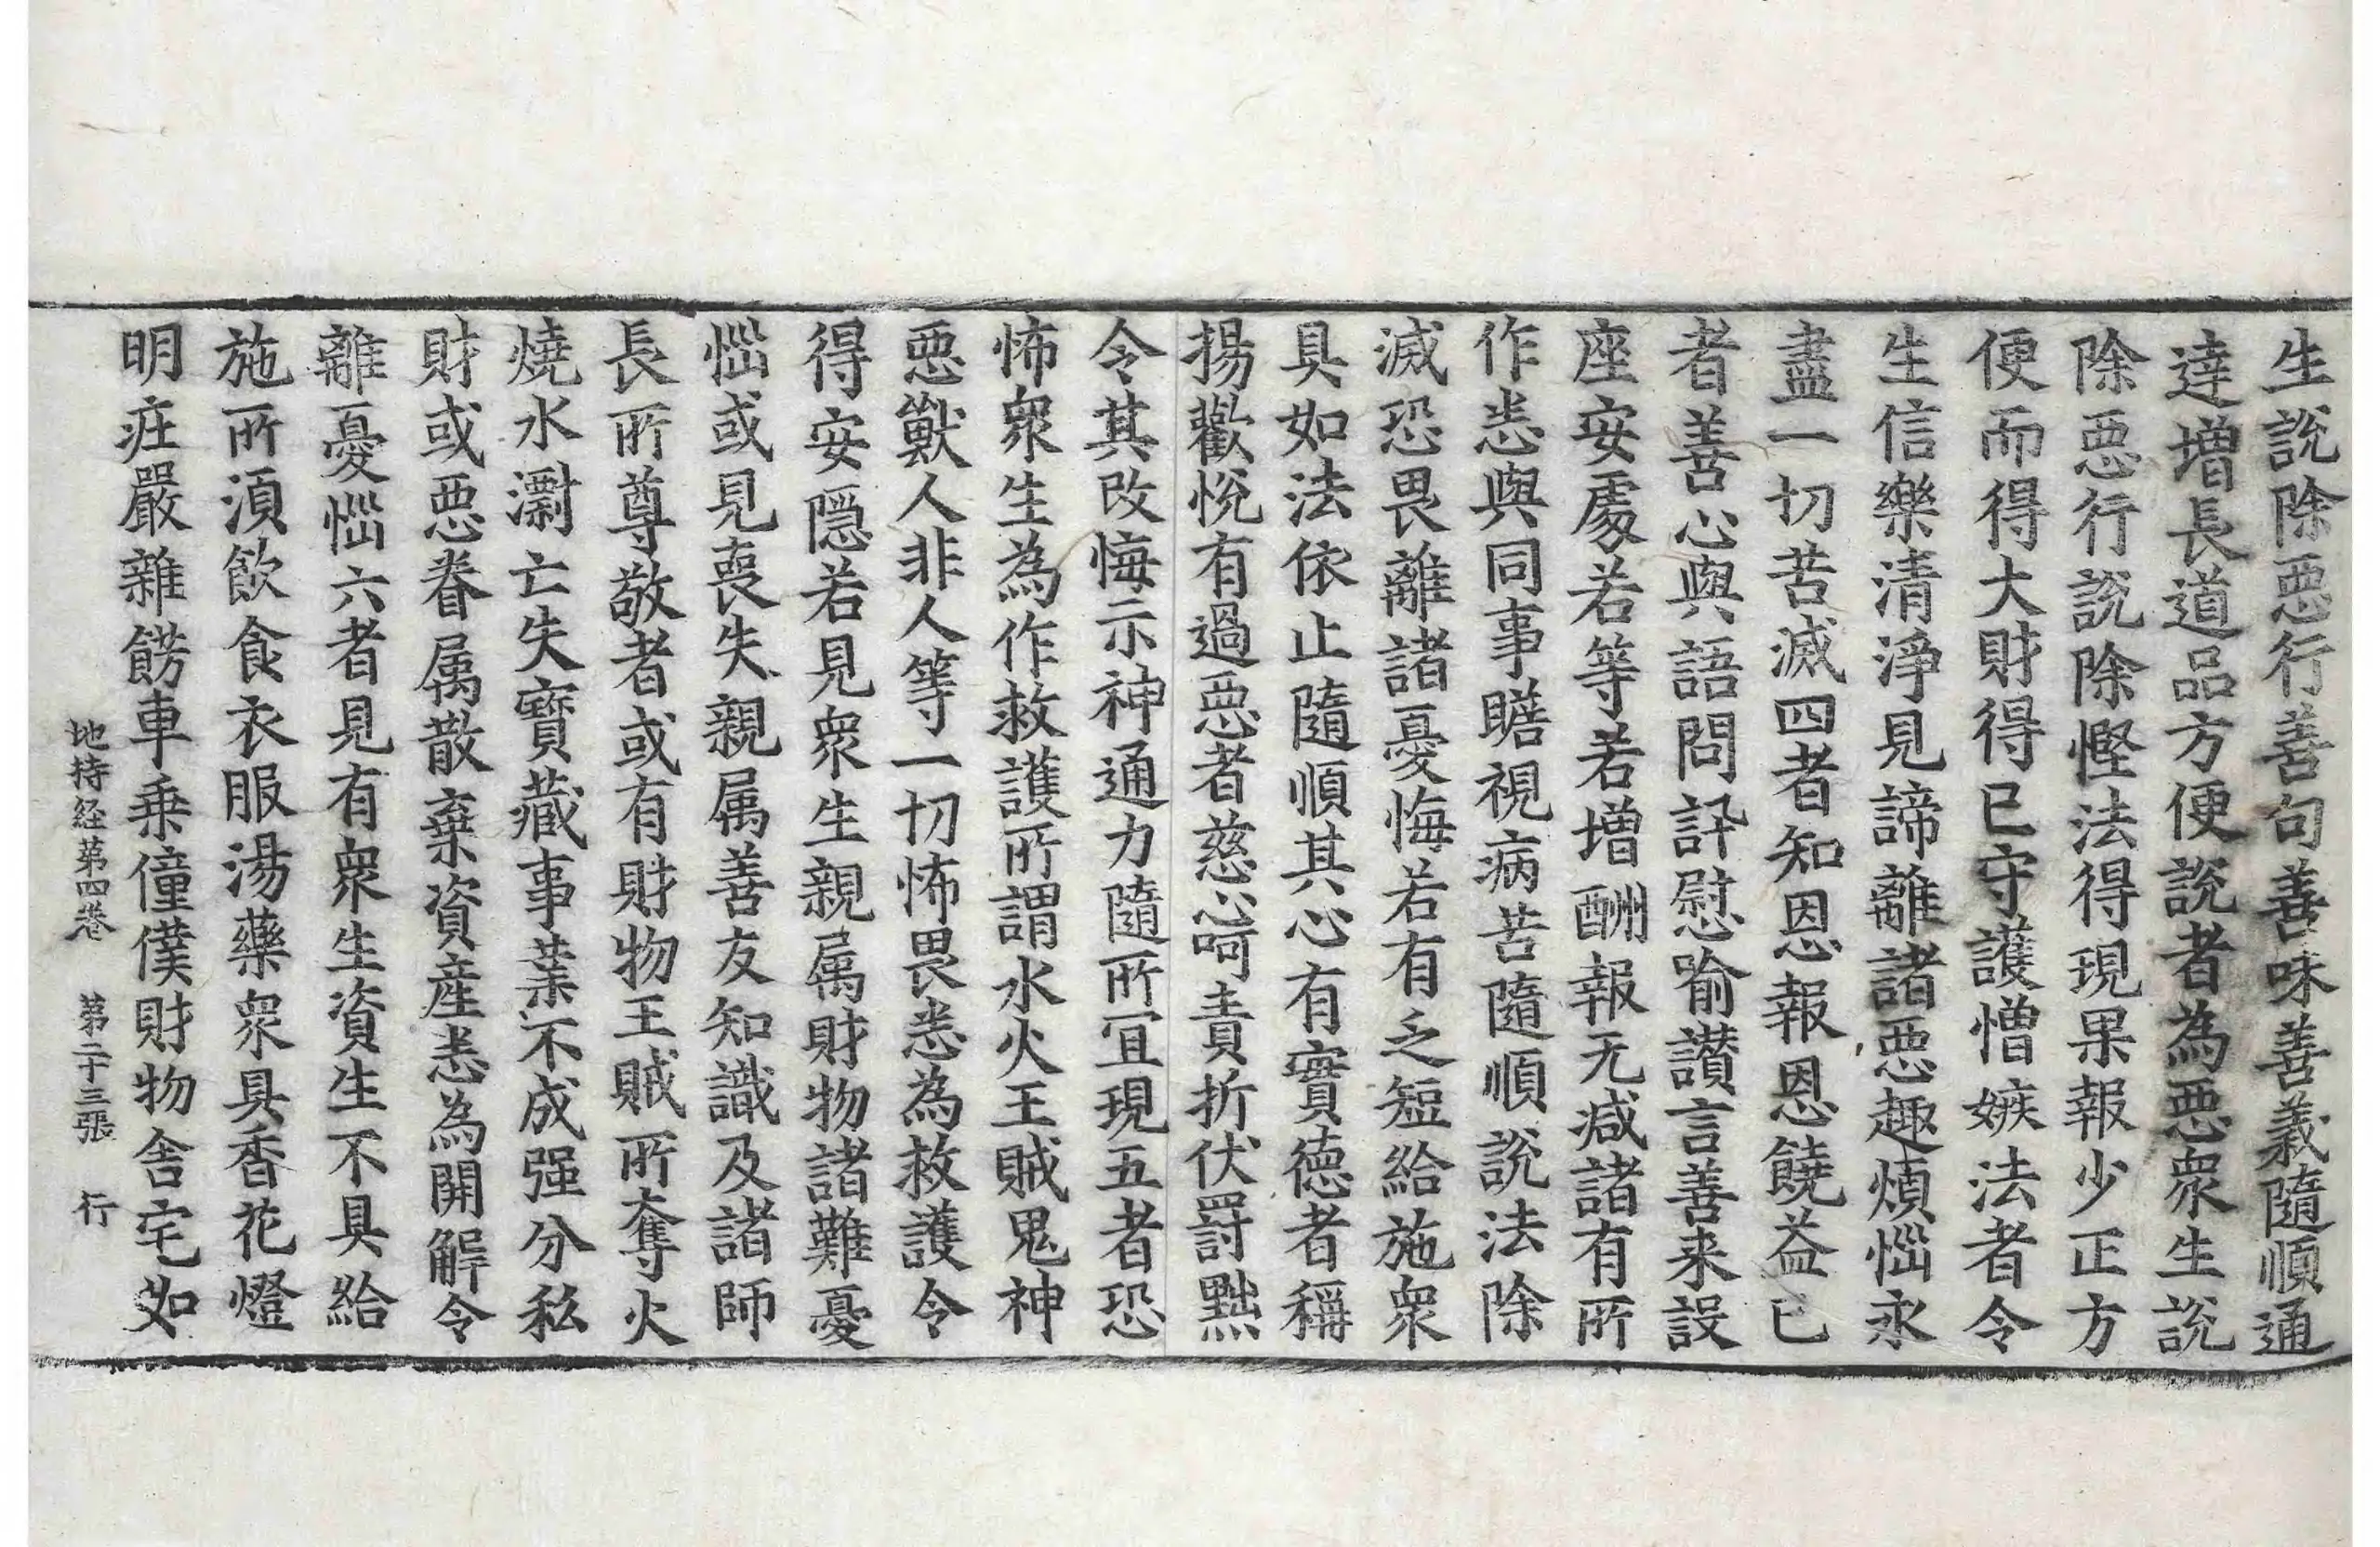 生說除惡行善句善味善義隨順通
達增長道品方便說者為惡衆生說
除惡行說除慳法得現果報少正方
便而得大財得已守護憎嫉法者令
生信樂清淨見諦離諸惡趣煩惱永
盡一切苦滅四者知恩報恩饒益已
者善心與語問訃慰喻讃言善来設
座安處若等若增酬報无減諸有所
作悉與同事瞻視病苦隨順說法除
滅恐畏離諸憂悔若有乏短給施衆
具如法依止隨順其心有實德者稱
揚歡悅有過惡者慈心呵責折伏罸黜
令其改悔示神通力隨所冝現五者恐
怖衆生為作救護所謂水火王賊鬼神
惡獸人非人等一切怖畏悉為救護令
得安隱若見衆生親属財物諸難憂
惱或見喪失親属善友知識及諸師
長所尊敬者或有財物王賊所奪火
燒水㵽亡失寶藏事業不成强分私
財或惡眷属散棄資產悉為開解令
離憂惱六者見有衆生資生不具給
施所湏飲食衣服湯藥衆具香花燈
明莊嚴雜餝車乗僮僕財物舍宅如
地持经苐四巻 苐二十三張 行